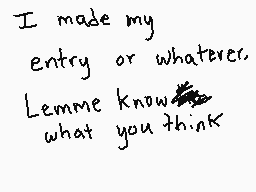 I made my
entry or whatever.
Lemme know
what you think